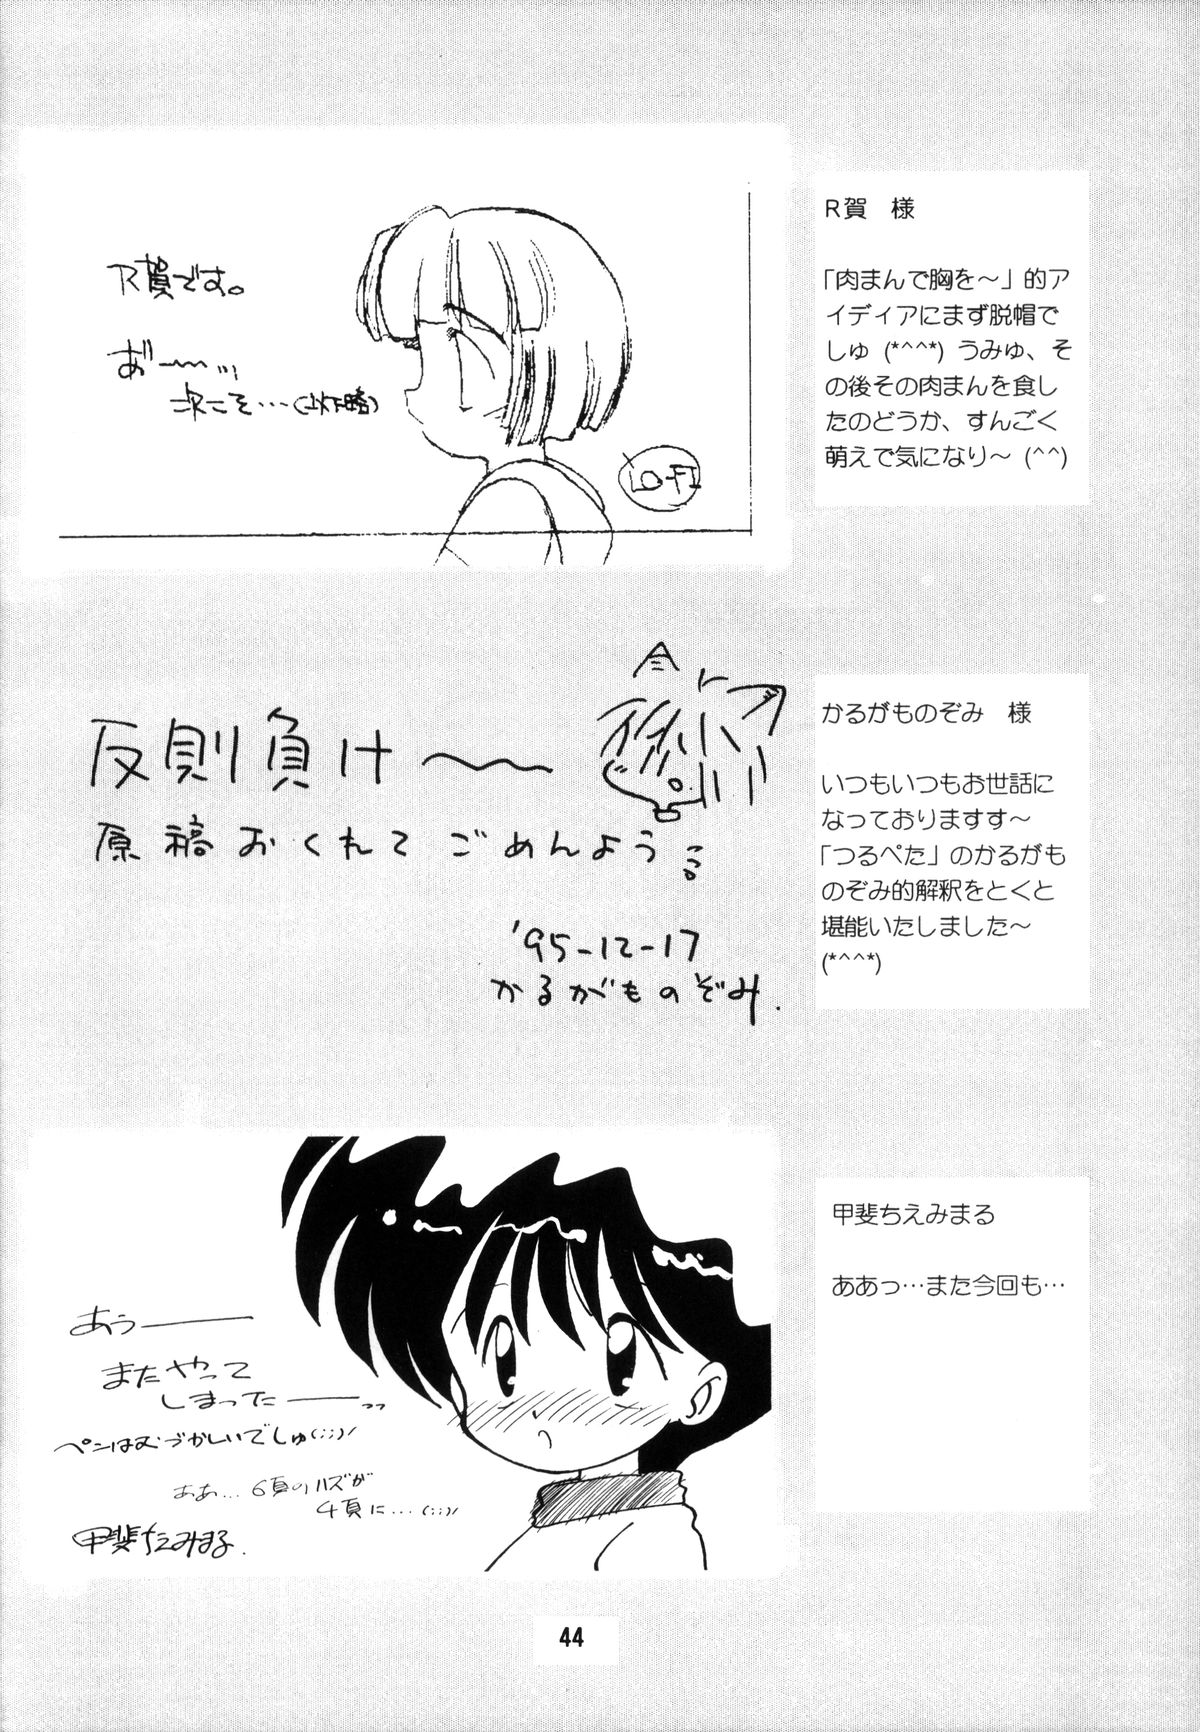 R賀です。
お〜〜…
次こそ…(以下略)
LO-FI
R賀　様
「肉まんで胸を〜」的ア
イディアにまず脱帽で
しゅ (*^^*) うみゅ、そ
の後その肉まんを食し
たのどうか、すんごく
萌えで気になり〜 (^^)
反則負け〜
原稿おくれてごめんよう
'95-12-17
かるがものぞみ.
かるがものぞみ　様
いつもいつもお世話に
なっておりますす〜
「つるぺた」のかるがも
のぞみ的解釈をとくと
堪能いたしました〜
(*^^*)
あぅ――
またやって
しまった――っっ
ペンはむづかしいでしゅ(;;)/
ああ…6頁のハズが
4頁に…(;;)/
甲斐ちえみまる.
甲斐ちえみまる
ああっ…また今回も…
44